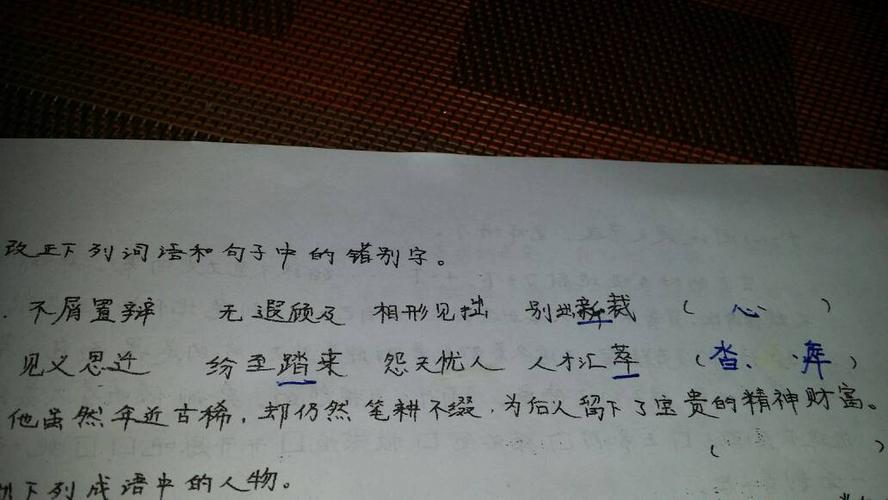 改正下列词语和句子中的错别字。
. 不屑置辩 无遐顾及 相形见拙 别出新裁 ( 心 )
见义思迁 纷至踏来 怨天忧人 人才汇萃 ( 沓、 )
他虽然年近古稀，却仍然笔耕不缀，为后人留下了宝贵的精神财富。
( )
下列成语中的人物。